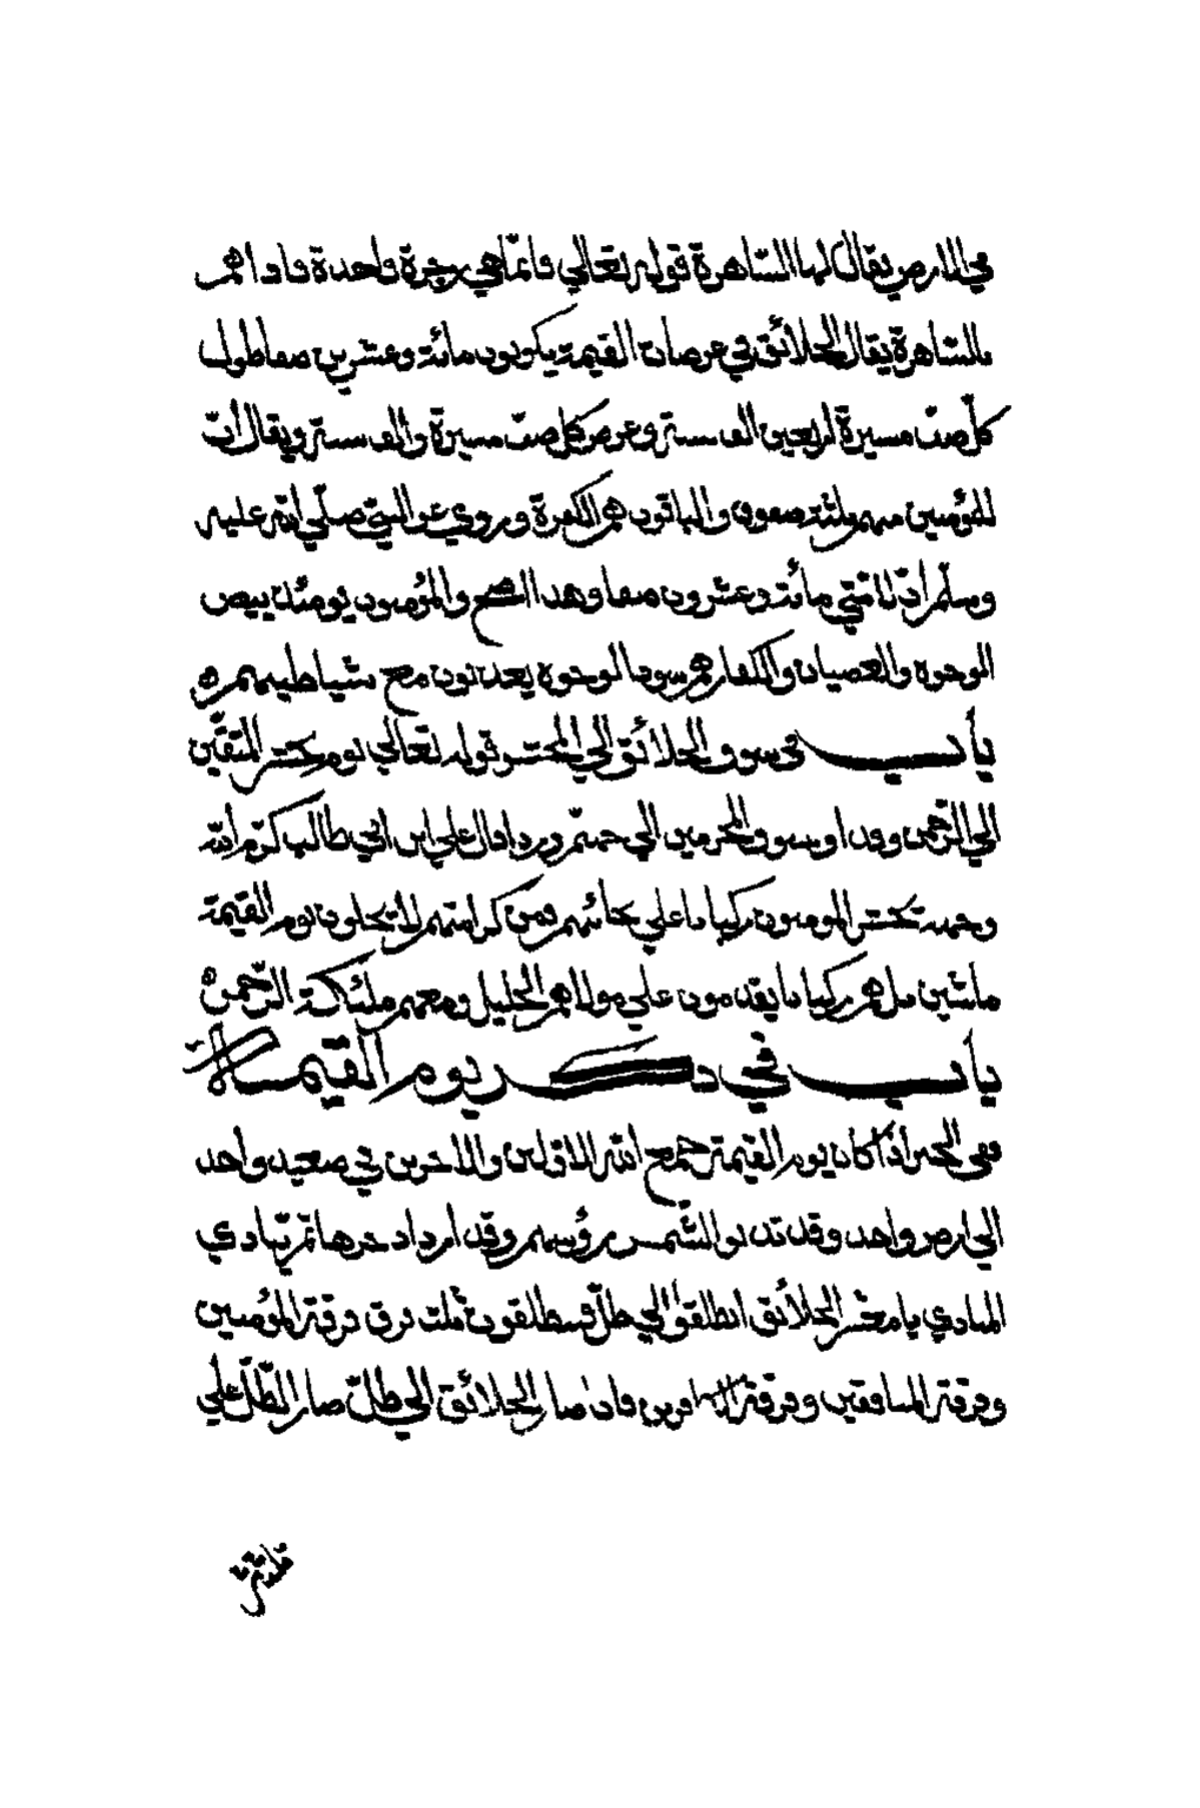 في الارض يقال لها السّاهرة قوله تعالي فانّما هي زجرة واحدة فاذا هم
بالسّاهرة يقال الخلائق في عرصات القيمة يكونون مائة وعشرين صفا طول
كلّ صفّ مسيرة اربعين الف سنة وعرض كل صفّ مسيرة والف سنة ويقال انّ
المؤمنين منهم ثلثة صفوف والباقون هم الكفرة وروي عن النبيّ صلّي الله عليه
وسلّم انّ لامّتي مائة وعشرون صفا وهذا اصح والمؤمنون يومئذ بيض
الوجوه والعصيان والكفار هم سود الوجوه يعذبون مع شياطينهم ه
باب في سوق الخلائق الي المحشر قوله تعالي يوم نحشر المتقّين
الي الرّحمن وفدا ونسوق المجرمين الي جهنّم وردا قال علي ابن ابي طالب كرّم الله
وجهه تحشر المومنون ركبانا علي نجائبهم ومن كرامتهم لا يخلون يوم القيمة
ماشين بل هم ركبانا يقدمون علي مولاهم الجليل ومعهم ملئكة الرّحمن ه
باب في ذكر يوم القيمة
ففي الخبر اذا كان يوم القيمة جمع الله الاوّلين والاخرين في صعيد واحد
الي ارض واحد وقد تدنو الشّمس رؤسهم وقد ازداد حرها ثمّ ينادي
المنادي يا معشر الخلائق انطلقوا الي ظلّ فينطلقون ثلث فرق فرقة المؤمنين
وفرقة المنافقين وفرقة الكافرين فاذا صار الخلائق الي ظلّ صار الظّلّ علي
ثلاثة